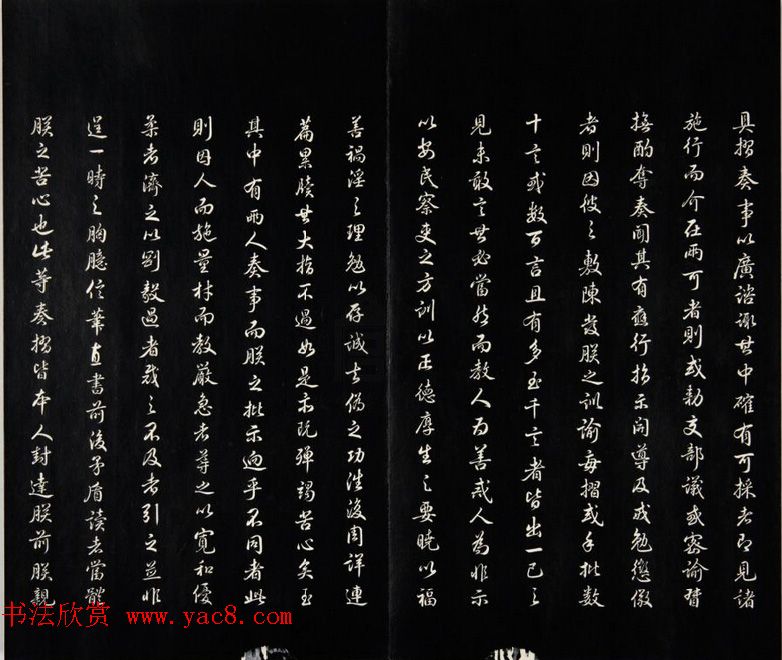 具摺奏事以廣諮諏其中確有可採者即見諸
施行而介在兩可者則或勅交部議或密諭督
撫酌奪奏聞其有應行指示開導及戒勉懲儆
者則因彼之敷陳發朕之訓諭每摺或手批數
十言或數百言且有多至千言者皆出一己之
見未敢言其必當然而教人為善戒人為非示
以安民察吏之方訓以正德厚生之要曉以福
善禍淫之理勉以存誠去偽之功諄復周詳連
篇累牘其大指不過如是亦既殫竭苦心矣至
其中有兩人奏事而朕之批示迥乎不同者此
則因人而施量材而教嚴急者導之以寬和優
柔者濟之以剛毅過者裁之不及者引之並非
逞一時之胸臆信筆直書前後矛盾讀者當體
朕之苦心也此等奏摺皆本人封達朕前朕親
书法欣赏 www.yac8.com